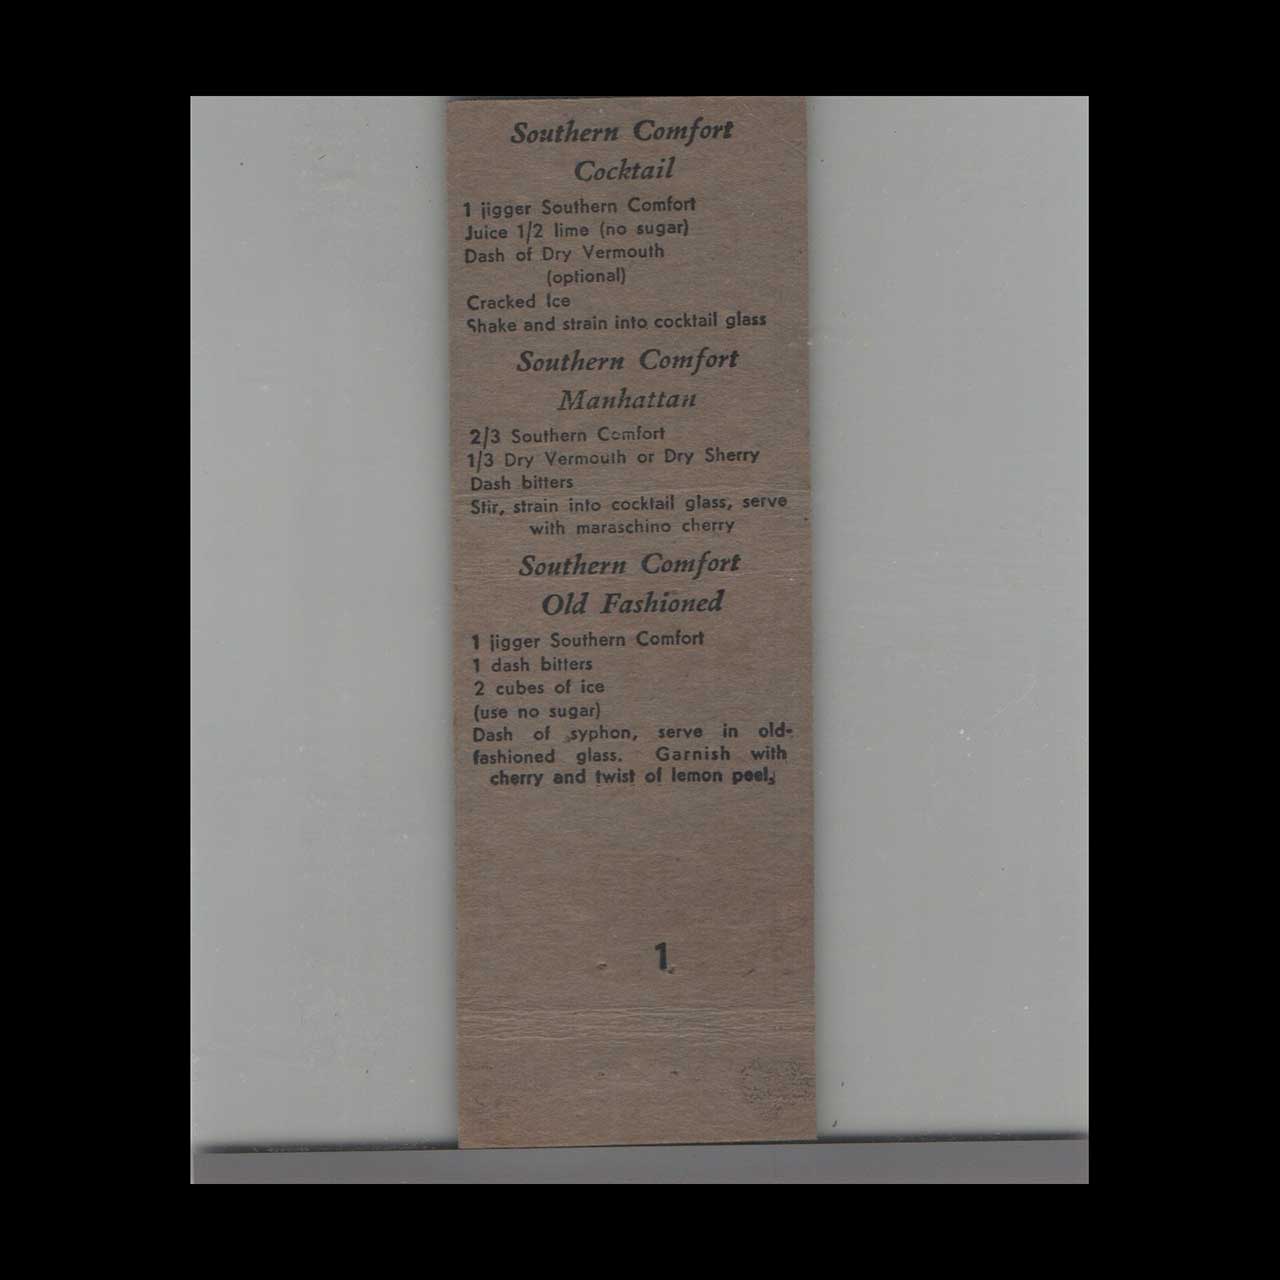 Southern Comfort
Cocktail
1 jigger Southern Comfort
Juice 1/2 lime (no sugar)
Dash of Dry Vermouth
(optional)
Cracked Ice
Shake and strain into cocktail glass
Southern Comfort
Manhattan
2/3 Southern Comfort
1/3 Dry Vermouth or Dry Sherry
Dash bitters
Stir, strain into cocktail glass, serve
with maraschino cherry
Southern Comfort
Old Fashioned
1 jigger Southern Comfort
1 dash bitters
2 cubes of ice
(use no sugar)
Dash of syphon, serve in old-
fashioned glass. Garnish with
cherry and twist of lemon peel.
1